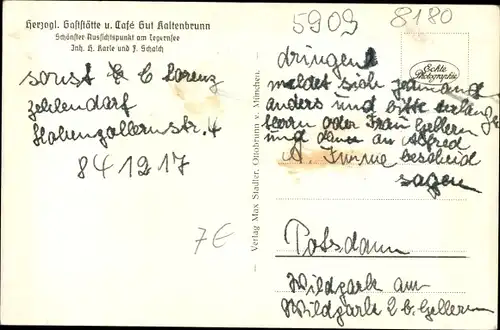 Herzogl. Gaststätte u. Café Gut Kaltenbrunn
Schönster Aussichtspunkt am Tegernsee
Inh. H. Karle und F. Schalch
sonst b C Lorenz
Zehlendorf
Hohenzollernstr. 4
84 12 17
7€
— Verlag Max Stadler, Ottobrunn v. München. —
5909
8180
Echte
Photographie
dringend
meldet sich jemand
anders und bitte verlangen
Herrn oder Frau Gellern
und dann an Alfred
bescheid
sagen
Potsdam
Wildpark am
Wildpark 2 b. Gellern